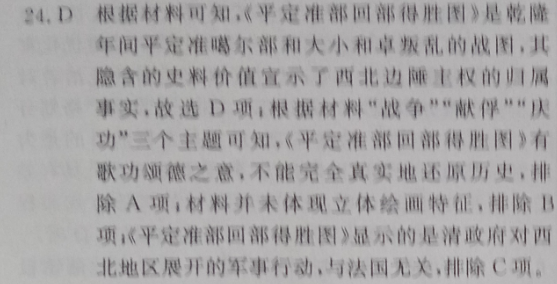 24. D 根据材料可知,《平定准部回部得胜图》是乾隆
年间平定准噶尔部和大小和卓叛乱的战图,其
隐含的史料价值宣示了西北边陲主权的归属
事实,故选 D 项;根据材料“战争”“献俘”“庆
功”三个主题可知,《平定准部回部得胜图》有
歌功颂德之意,不能完全真实地还原历史,排
除 A 项;材料并未体现立体绘画特征,排除 B
项;《平定准部回部得胜图》显示的是清政府对西
北地区展开的军事行动,与法国无关,排除 C 项。